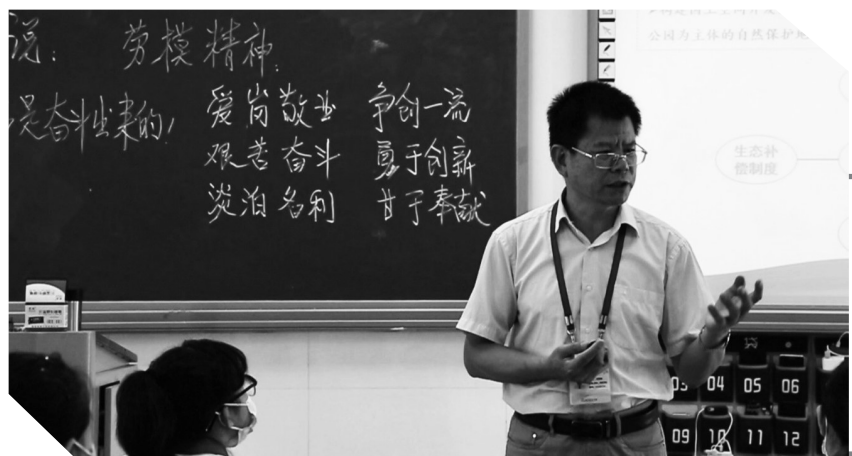 说：
劳模精神
是奋斗出来的！
爱岗敬业 争创一流
艰苦奋斗 勇于创新
淡泊名利 甘于奉献
公园为主体的自然保护地
生态补
偿制度
03 04 05 06
09 10 11 12